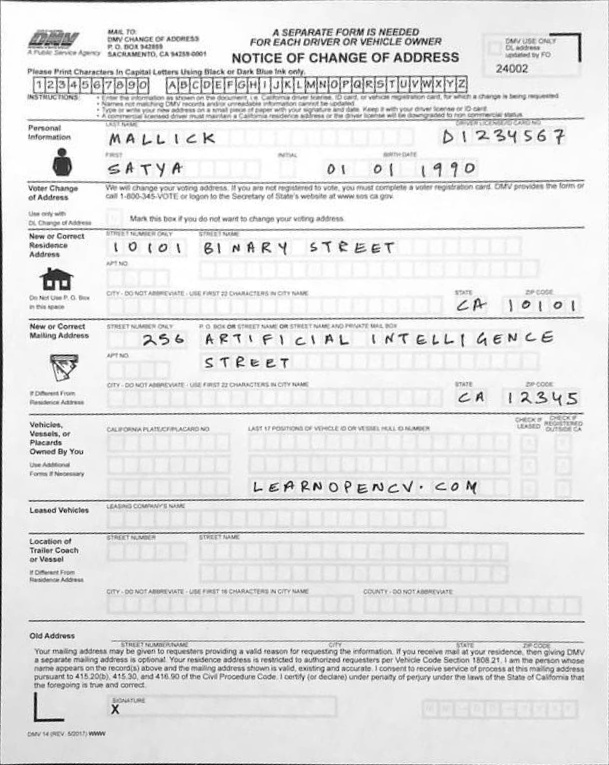 DMV
A Public Service Agency
MAIL TO:
DMV CHANGE OF ADDRESS
P. O. BOX 942859
SACRAMENTO, CA 94259-0001
A SEPARATE FORM IS NEEDED
FOR EACH DRIVER OR VEHICLE OWNER
NOTICE OF CHANGE OF ADDRESS
DMV USE ONLY
DL address
updated by FO
24002
Please Print Characters In Capital Letters Using Black or Dark Blue Ink only.
1 2 3 4 5 6 7 8 9 0 A B C D E F G H I J K L M N O P Q R S T U V W X Y Z
INSTRUCTIONS:
• Enter the information as shown on the document, i.e. California driver license, ID card, or vehicle registration card, for which a change is being requested.
• Names not matching DMV records and/or unreadable information cannot be updated.
• Type or write your new address on a small piece of paper with your signature and date. Keep it with your driver license or ID card.
• A commercial licensed driver must maintain a California residence address or the driver license will be downgraded to non commercial status.
Personal
Information
LAST NAME
DRIVER LICENSE/ID CARD NO.
MALLICK D1234567
FIRST INITIAL BIRTH DATE
SATYA 01 01 1990
Voter Change
of Address
We will change your voting address. If you are not registered to vote, you must complete a voter registration card. DMV provides the form or
call 1-800-345-VOTE or logon to the Secretary of State's website at www.sos.ca.gov.
Use only with
DL Change of Address
Mark this box if you do not want to change your voting address.
New or Correct
Residence
Address
STREET NUMBER ONLY STREET NAME
10101 BINARY STREET
APT NO.
Do Not Use P. O. Box
in this space
CITY - DO NOT ABBREVIATE - USE FIRST 22 CHARACTERS IN CITY NAME STATE ZIP CODE
CA 10101
New or Correct
Mailing Address
STREET NUMBER ONLY P. O. BOX OR STREET NAME OR STREET NAME AND PRIVATE MAIL BOX
256 ARTIFICIAL INTELLIGENCE
APT NO.
STREET
If Different From
Residence Address
CITY - DO NOT ABBREVIATE - USE FIRST 22 CHARACTERS IN CITY NAME STATE ZIP CODE
CA 12345
Vehicles,
Vessels, or
Placards
Owned By You
Use Additional
Forms If Necessary
CALIFORNIA PLATE/CF/PLACARD NO LAST 17 POSITIONS OF VEHICLE ID OR VESSEL HULL ID NUMBER
CHECK IF
LEASED
CHECK IF
REGISTERED
OUTSIDE CA
LEARNOPENCV.COM
Leased Vehicles
LEASING COMPANY'S NAME
Location of
Trailer Coach
or Vessel
If Different From
Residence Address
STREET NUMBER STREET NAME
CITY - DO NOT ABBREVIATE - USE FIRST 16 CHARACTERS IN CITY NAME COUNTY - DO NOT ABBREVIATE
Old Address
STREET NUMBER/NAME CITY STATE ZIP CODE
Your mailing address may be given to requesters providing a valid reason for requesting the information. If you receive mail at your residence, then giving DMV
a separate mailing address is optional. Your residence address is restricted to authorized requesters per Vehicle Code Section 1808.21. I am the person whose
name appears on the record(s) above and the mailing address shown is valid, existing and accurate. I consent to receive service of process at this mailing address
pursuant to 415.20(b), 415.30, and 416.90 of the Civil Procedure Code. I certify (or declare) under penalty of perjury under the laws of the State of California that
the foregoing is true and correct.
SIGNATURE
X
DMV 14 (REV. 6/2017) WWW